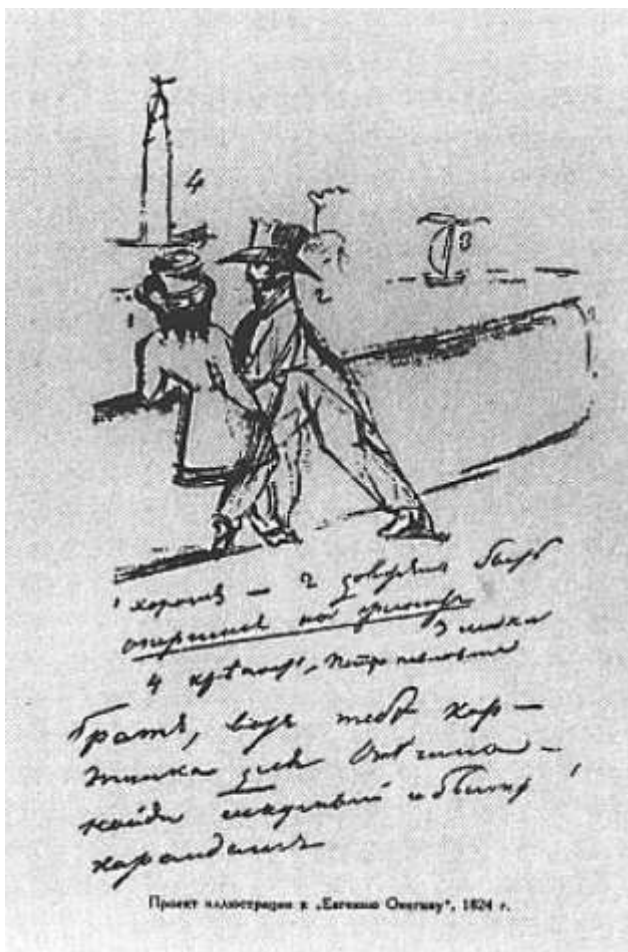 4
3
2
1
1 хорошъ — 2 долженъ быть
опершися на гранитъ
3 лодка
4 крѣпость, Петропавловская
Братъ, вотъ тебѣ кар-
тинка для Онѣгина —
найди искусный и быстрый
карандашъ
Проект иллюстрации к „Евгению Онегину", 1824 г.